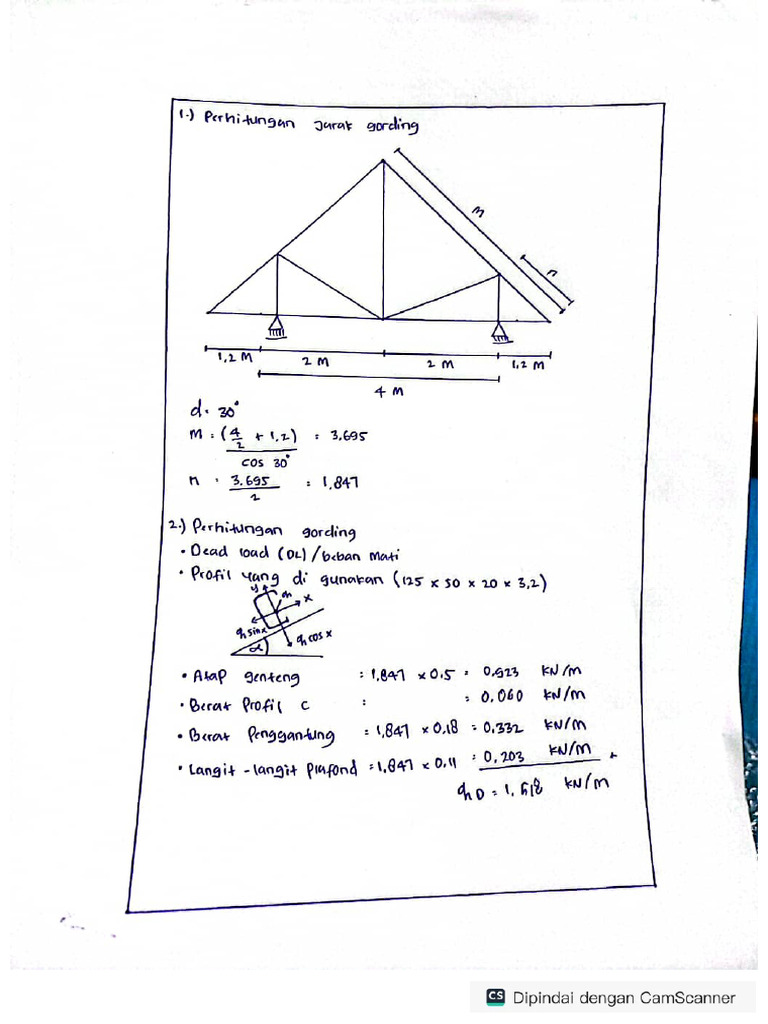 1.) Perhitungan Jarak gording
m
n
1,2 M 2 M 2 M 1,2 M
4 M
d = 30°
M = (4/2 + 1,2) / cos 30° = 3,695
n = 3,695 / 2 = 1,847
2.) Perhitungan gording
• Dead load (DL) / beban Mati
• Profil yang di gunakan (125 x 50 x 20 x 3,2)
y q x
q sin x q cos x
α
• Atap genteng = 1,847 x 0,5 = 0,923 kN/m
• Berat Profil C = = 0,060 kN/m
• Berat Penggantung = 1,847 x 0,18 = 0,332 kN/m
• Langit-langit Plafond = 1,847 x 0,11 = 0,203 kN/m +
qD = 1,518 kN/m
CS Dipindai dengan CamScanner